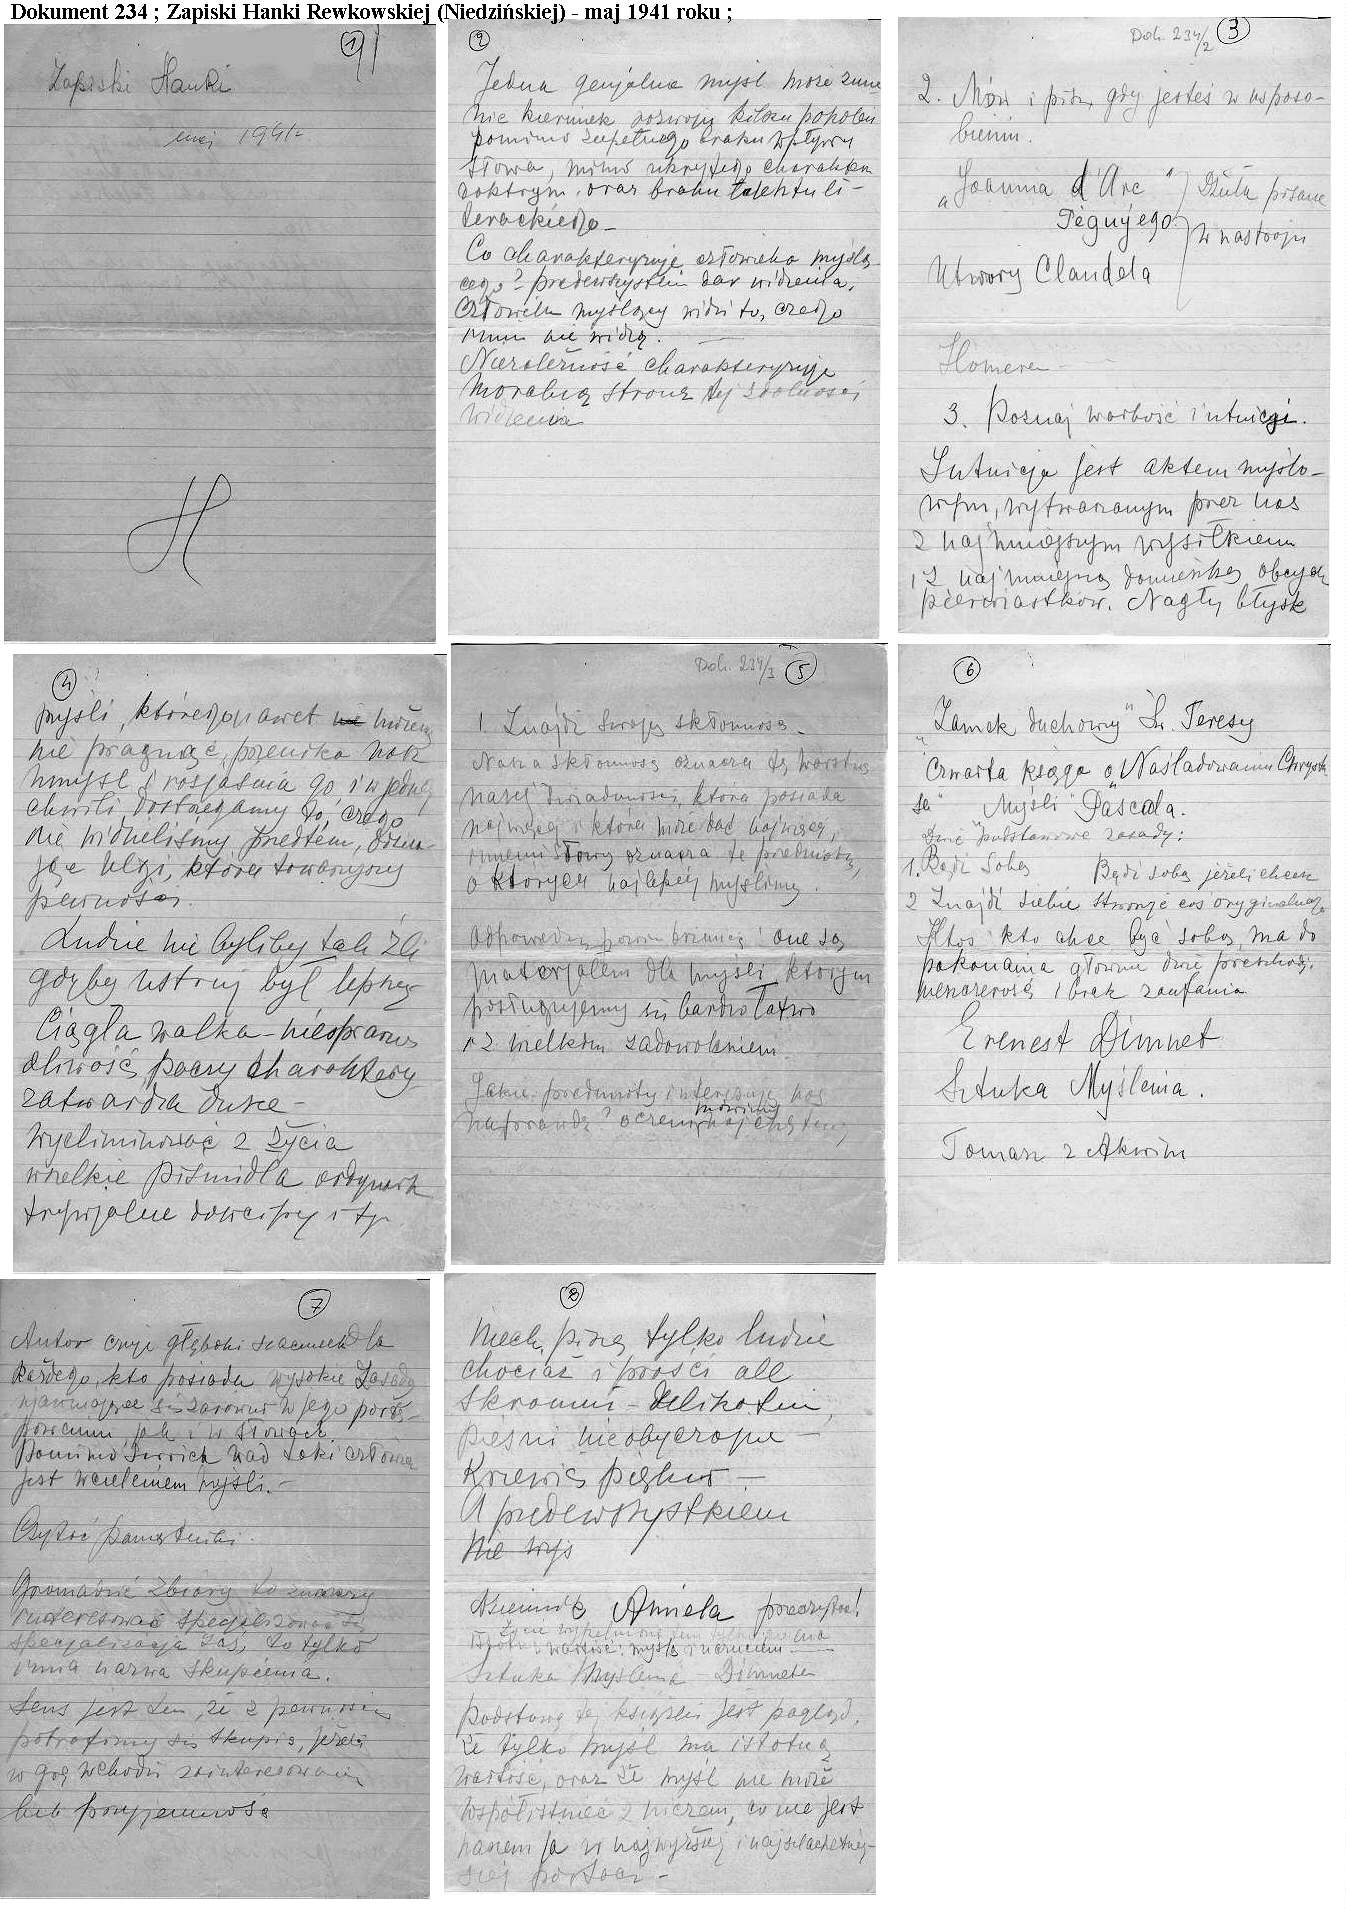 Dokument 234 ; Zapiski Hanki Rewkowskiej (Niedzińskiej) - maj 1941 roku ;
1
91
Zapiski Hanki
maj 1941
H
2
Jedna genjalna myśl może zmie
nić kierunek rozwoju kilku pokoleń
pomimo zupełnego braku wpływu
słowa, mimo ukrytego charakteru
doktryn, oraz braku talentu li-
terackiego_
Co charakteryzuje człowieka myślą
cego? przedewszystkim dar widzenia.
Człowiek myślący widzi to, czego
inni nie widzą.
Niezależność charakteryzuje
moralną stronę tej zdolności
widzenia
Dok. 234/2
3
2. Mów i pisz, gdy jesteś w usposo-
bieniu.
"Joanna d'Arc"
Péguy'ego
Utwory Claudela
Dzieła pisane
w nastroju
Homera -
3. Poznaj wartość intuicji.
Intuicja jest aktem myślo-
wym, wytwarzanym przez nas
z najmniejszym wysiłkiem
i z najmniejszą domieszką obcych
pierwiastków. Nagły błysk
4
myśli, którego nawet nie możemy
nie pragnąć, przenika nasz
umysł i rozjaśnia go i w jednej
chwili dostrzegamy to, czego
nie widzieliśmy przedtem, dozna-
jąc ulgi, która towarzyszy
pewności.
Ludzie nie byliby tak źli
gdyby ustrój był lepszy
Ciągła walka - niesprawie
dliwość paczy charaktery
zatwardza dusze -
Wyeliminować z życia
wszelkie piśmidła ordynarne
trywjalne dowcipy i t.p.
Dok. 234/3
5
1. Znajdź swoją skłonność.
Nasza skłonność oznacza tę warstwę
naszej świadomości, która posiada
najwięcej i która może dać najwięcej,
innemi słowy oznacza te przedmioty,
o których najlepiej myślimy.
Odpowiedź powinna brzmieć: one są
materjałem dla myśli, którym
posługujemy się bardzo łatwo
i z wielkim zadowoleniem
Jakie przedmioty interesują nas
naprawdę? o czem mówimy najchętniej
6
"Zamek duchowy" Św. Teresy
Czwarta księga "o Naśladowaniu Chrystu
sa" "Myśli" Pascala.
Dwie podstawowe zasady:
1. Bądź sobą Bądź sobą jeżeli chcesz
2 Znajdź siebie stworzyć coś oryginalnego
Ktoś kto chce być sobą, ma do
pokonania głównie dwie przeszkody:
nieszczerość i brak zaufania
Ernest Dimnet
Sztuka Myślenia.
Tomasz z Akwinu
7
Autor czuje głęboki szacunek dla
każdego, kto posiada wysokie zasady
ujawniające się zarówno w jego postę-
powaniu jak i w słowach.
jest wcieleniem myśli.-
Czytać pamiętniki.
Gromadzić zbiory to znaczy
interesować specjalizować się
specjalizacja zaś, to tylko
inna nazwa skupienia.
Sens jest ten, że z pewnością
potrafimy się skupić, jeżeli
w grę wchodzi zainteresowanie
lub przyjemność
8
Niech piszą tylko ludzie
chociaż i prości ale
skromni - delikatni
pieśni nieobyczajne -
Krzewić piękno -
A przedewszystkiem
Nie wys
Dziennik Amiela przeczytać!
Życie wypełnione
wartość: myślą i uczuciem
Sztuka Myślenia - Dimneta
podstawą tej książki jest pogląd,
że tylko myśl ma istotną
wartość, oraz że myśl nie może
współistnieć z niczem, co nie jest
nasem ja w najwyższej i najszlachetniej-
szej postaci -